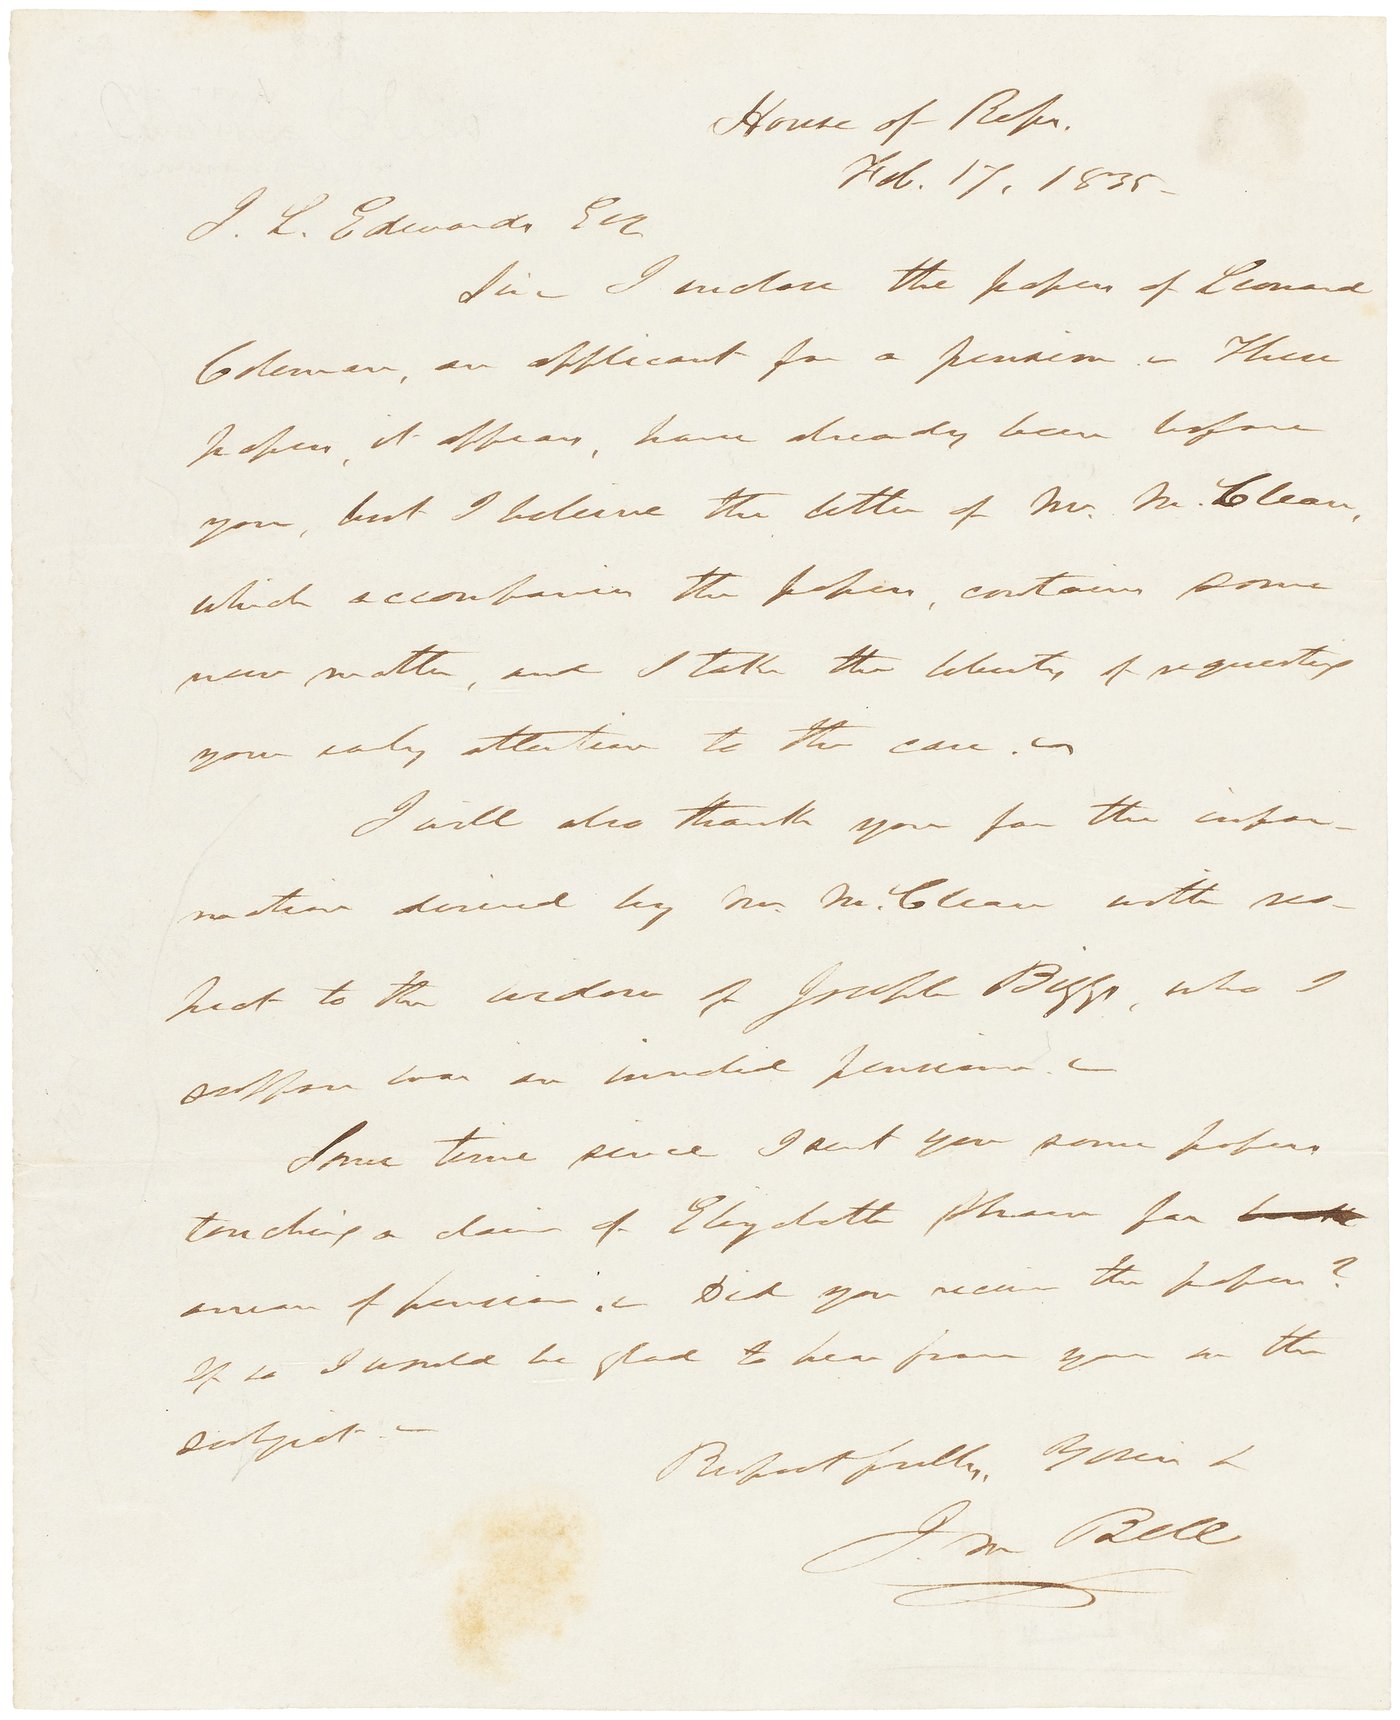 House of Reps.
Feb. 17, 1835-
J. L. Edwards Esq
Sir - I enclose the papers of Leonard
Coleman, an applicant for a pension. - These
papers, it appears, have already been before
you, but I believe the letter of Mr. Mc.Clean,
which accompanies the papers, contains some
new matter, and I take the liberty of requesting
your early attention to the case. -
I will also thank you for the infor-
mation desired by Mr. Mc.Clean with res-
pect to the widow of Joseph Biggs, who I
suppose was an invalid pensioner. -
Some time since I sent you some papers
touching a claim of Elizabeth Shaw for
arrears of pension. - Did you receive the papers?
If so I would be glad to hear from you on the
subject. -
Respectfully, Yours &
J. M. Bell